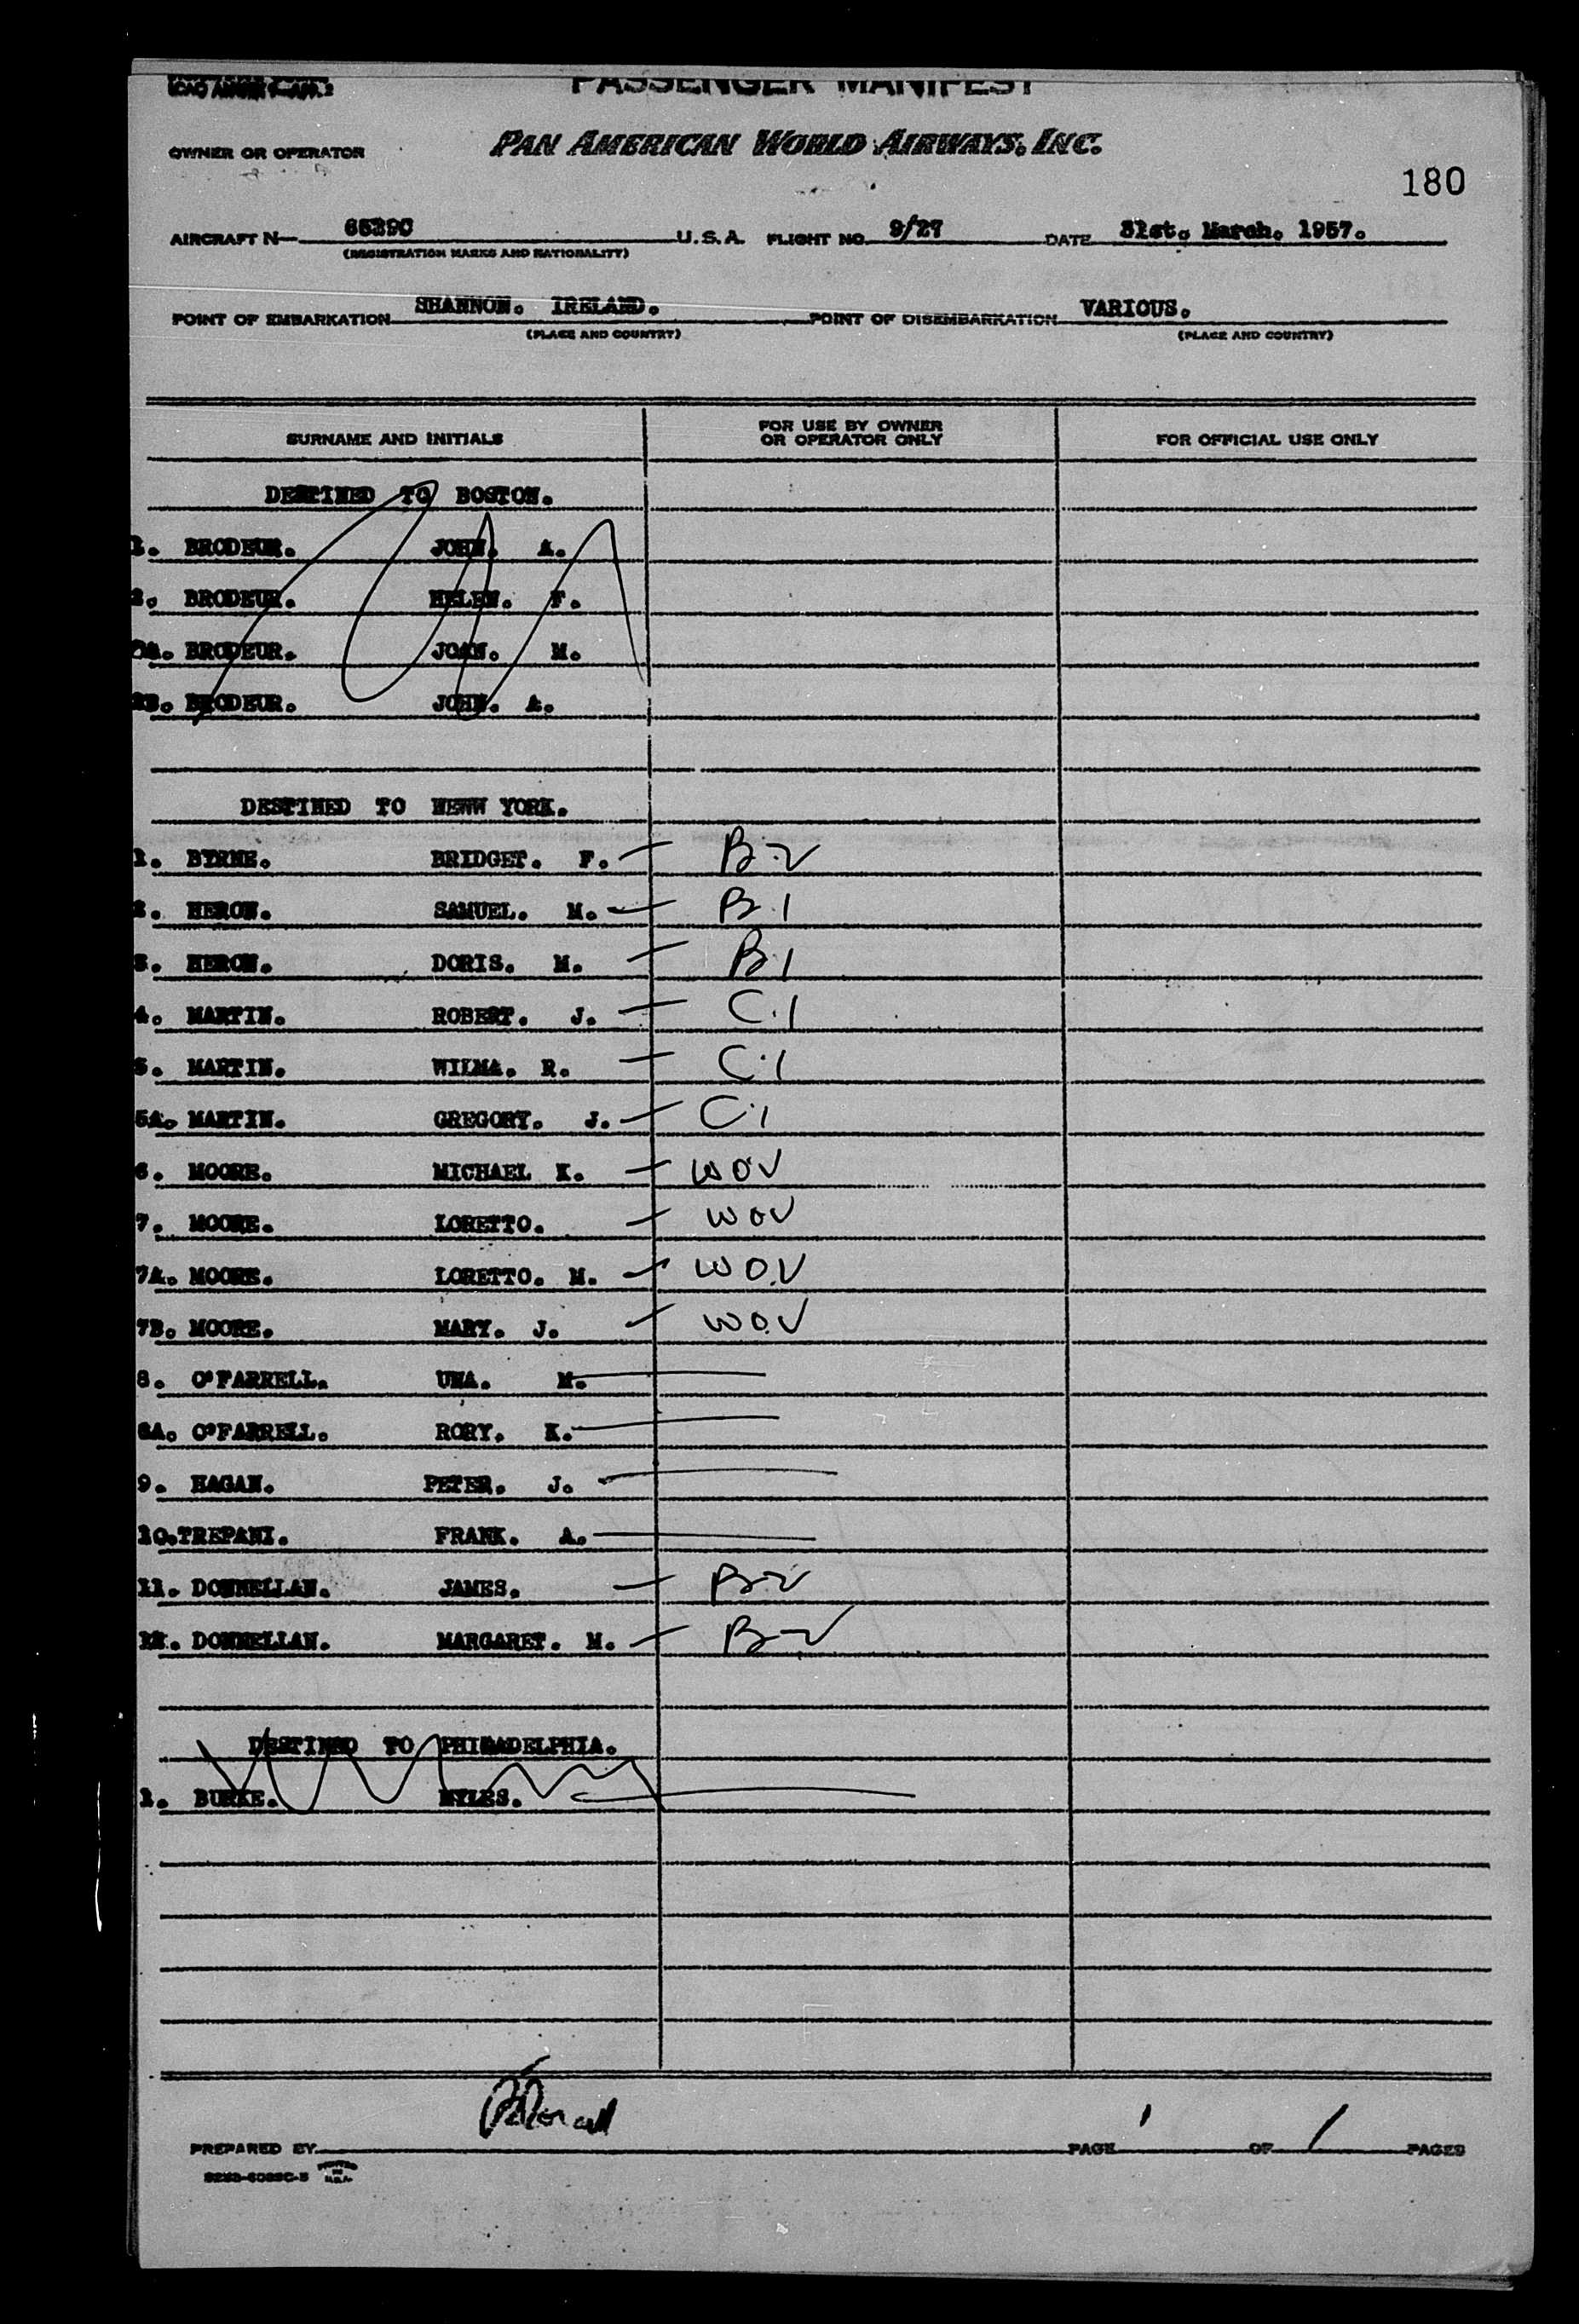 PASSENGER MANIFEST
OWNER OR OPERATOR PAN AMERICAN WORLD AIRWAYS, INC.
180
AIRCRAFT N— 65390 U.S.A. FLIGHT NO. 9/27 DATE 31st. March. 1957.
(REGISTRATION MARKS AND NATIONALITY)
POINT OF EMBARKATION SHANNON. IRELAND. POINT OF DISEMBARKATION VARIOUS.
(PLACE AND COUNTRY) (PLACE AND COUNTRY)
SURNAME AND INITIALS FOR USE BY OWNER OR OPERATOR ONLY FOR OFFICIAL USE ONLY
DESTINED TO BOSTON.
1. BRODEUR. JOHN. A.
2. BRODEUR. HELEN. F.
2A. BRODEUR. JOAN. M.
2B. BRODEUR. JOHN. A.
DESTINED TO NEWW YORK.
1. BYRNE. BRIDGET. F. — B-2
2. HERON. SAMUEL. M. — B.1
3. HERON. DORIS. M. — B.1
4. MARTIN. ROBERT. J. — C.1
5. MARTIN. WILMA. R. — C.1
5A. MARTIN. GREGORY. J. — C.1
6. MOORE. MICHAEL K. — WOV
7. MOORE. LORETTO. — WOV
7A. MOORE. LORETTO. M. — WOV
7B. MOORE. MARY. J. — WOV
8. O'FARRELL. UNA. M.
8A. O'FARRELL. RORY. K.
9. HAGAN. PETER. J.
10. TREPANI. FRANK. A.
11. DONNELLAN. JAMES. — B-2
12. DONNELLAN. MARGARET. M. — B-2
DESTINED TO PHILADELPHIA.
1. BURKE. MYLES.
PREPARED BY PAGE 1 OF 1 PAGES
PRINTED IN U.S.A.